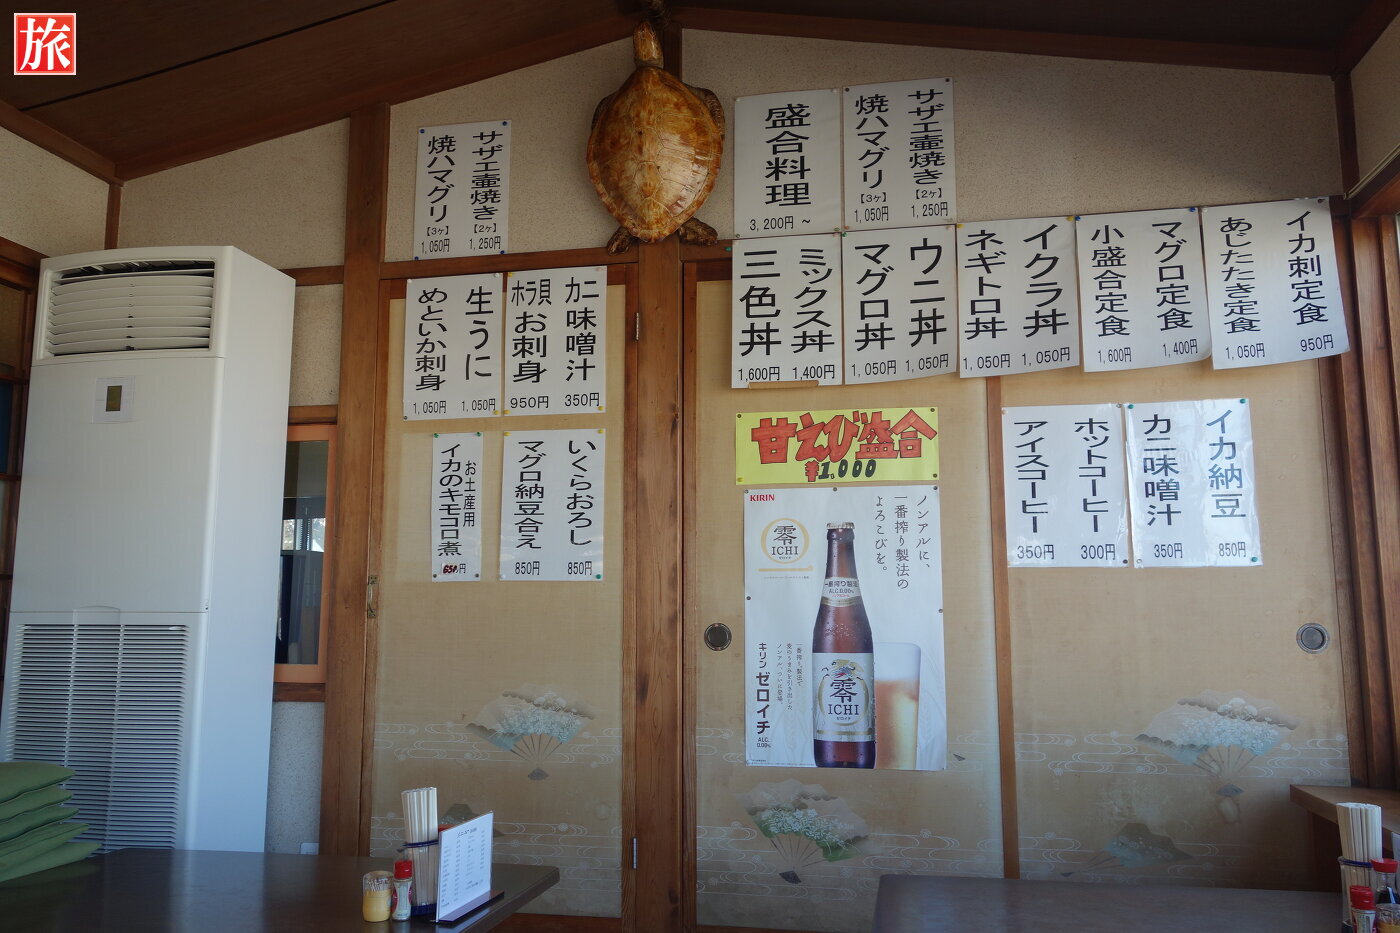 旅
サザエ壷焼き
【2ヶ】
1,250円
焼ハマグリ
【3ヶ】
1,050円
盛合料理
3,200円 ~
サザエ壷焼き
【2ヶ】
1,250円
焼ハマグリ
【3ヶ】
1,050円
カニ味噌汁
350円
ホラ貝お刺身
950円
生うに
1,050円
めといか刺身
1,050円
イカ刺定食
950円
あじたたき定食
1,050円
マグロ定食
1,400円
小盛合定食
1,600円
イクラ丼
1,050円
ネギトロ丼
1,050円
ウニ丼
1,050円
マグロ丼
1,050円
ミックス丼
1,400円
三色丼
1,600円
いくらおろし
850円
マグロ納豆合え
850円
お土産用
イカのキモコロ煮
650円
甘えび盛合
¥1,000
イカ納豆
850円
カニ味噌汁
350円
ホットコーヒー
300円
アイスコーヒー
350円
KIRIN
零
ICHI
ノンアルに、
一番搾り製法の
よろこびを。
一番搾り製法
ALC.0.00%
零
ICHI
一番搾り製法で
麦のうまみを引き出した
ノンアル、ついに登場。
キリン ゼロイチ
ALC.
0.00%